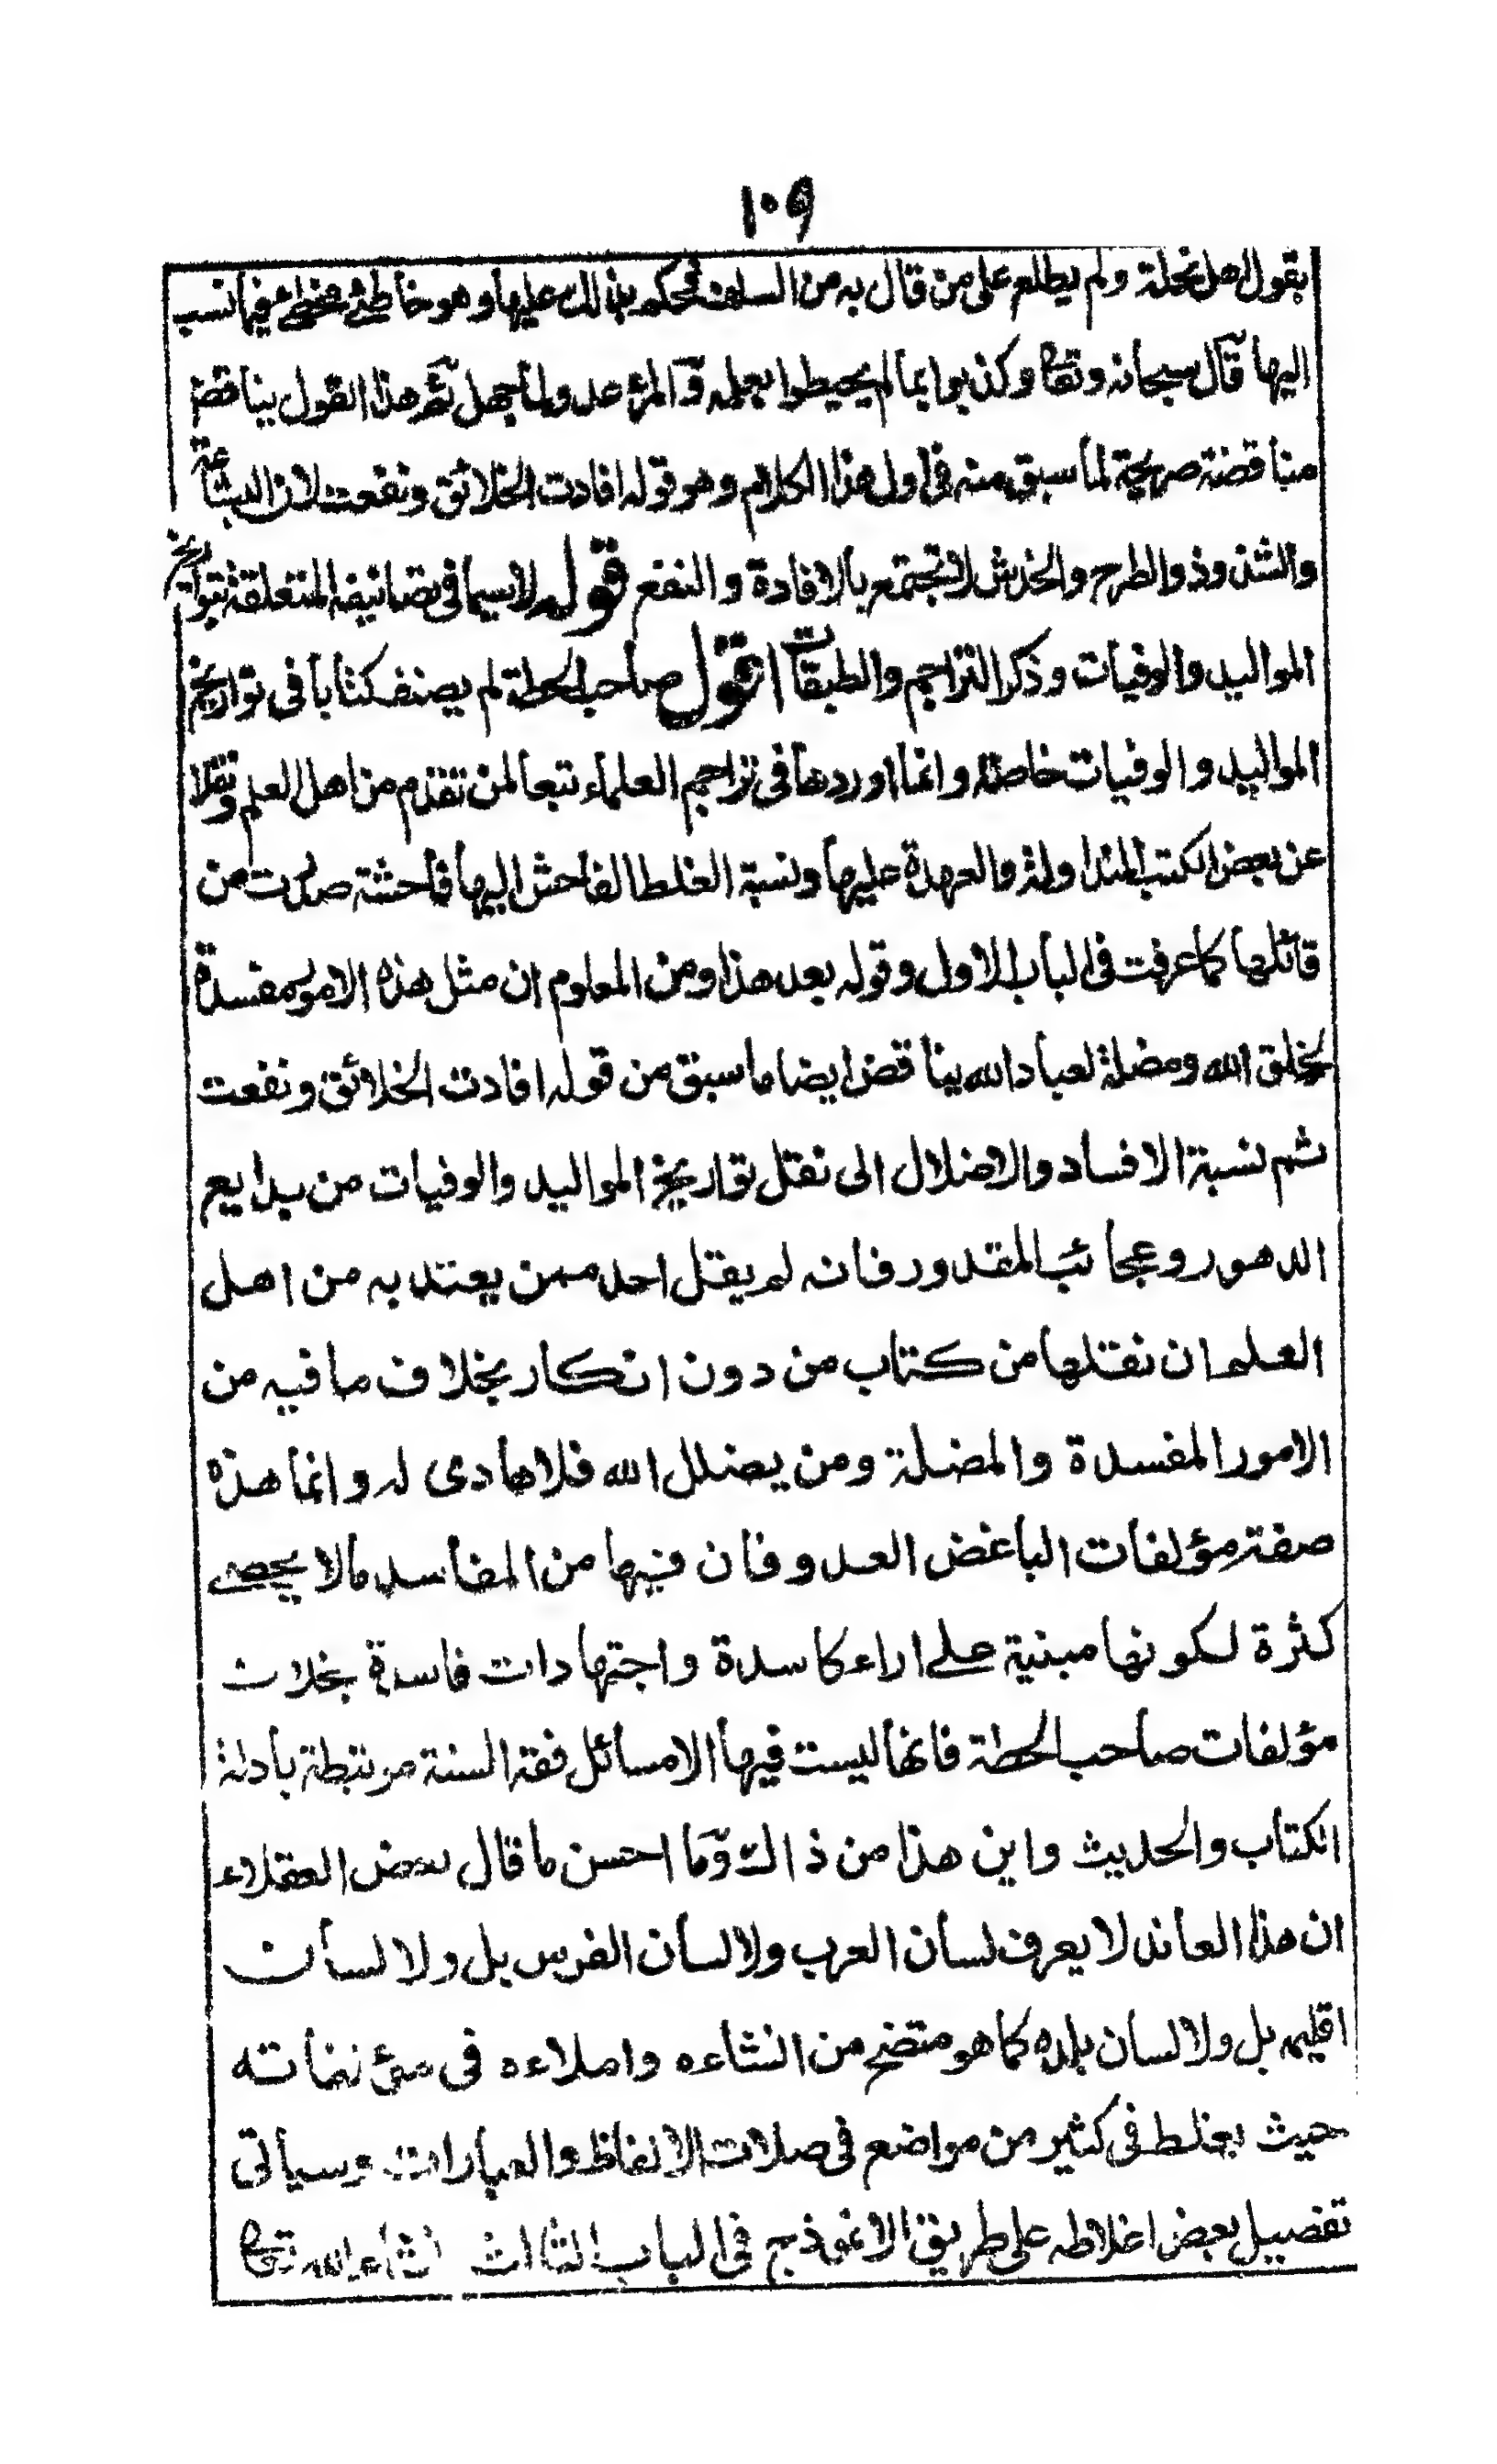 ١٠٩
بقول اهل نحلة ولم يطلع على من قال به من السلف فحكم بذلك عليها وهو خاطئ مخطئ فيما نسب
اليها قال سبحانه وتعا وكذبوا بما لم يحيطوا بعلمه والمرء عدو لما جهل ثم هذا القول يناقض
مناقضة صريحة لما سبق منه فى اول هذا الكلام وهو قوله افادت الخلائق ونفعت لان البشاعة
والشذوذ والطرح والخدش لا تجتمع بالافادة والنفع قوله لاسيما فى تصانيفه المتعلقة بتواريخ
المواليد والوفيات وذكر التراجم والطبقات اقول صاحب الحطة لم يصنف كتابا فى تواريخ
المواليد والوفيات خاصة وانما اوردها فى تراجم العلماء تبعا لمن تقدم من اهل العلم ونقلا
عن بعض الكتب المتداولة والعهدة عليها ونسبة الغلط الفاحش اليها فاحشة صدرت من
قائلها كما عرفت فى الباب الاول وقوله بعد هذا ومن المعلوم ان مثل هذه الامور مفسدة
لخلق الله ومضلة لعباد الله يناقض ايضا ما سبق من قوله افادت الخلائق ونفعت
ثم نسبة الافساد والاضلال الى نقل تواريخ المواليد والوفيات من بدايع
الدهور وعجائب المقدور فانه لم يقل احد ممن يعتد به من اهل
العلم ان نقلها من كتاب من دون انكار بخلاف ما فيه من
الامور المفسدة والمضلة ومن يضلل الله فلا هادى له وانما هذه
صفة مؤلفات الباغض العدو فان فيها من المفاسد مالا يحصى
كثرة لكونها مبنية على اراء كاسدة واجتهادات فاسدة بخلاف
مؤلفات صاحب الحطة فانها ليست فيها الا مسائل فقه السنة مرتبطة بادلة
الكتاب والحديث واين هذا من ذاك وما احسن ما قال بعض العقلاء
ان هذا العاند لا يعرف لسان العرب ولا لسان الفرس بل ولا لسان
اقليمه بل ولا لسان بلده كما هو متضح من انشاءه واملاءه فى مؤلفاته
حيث يغلط فى كثير من مواضع فى صلات الالفاظ والعبارات وسياتى
تفصيل بعض اغلاطه على طريق الانموذج فى الباب الثالث انشاء الله تعا